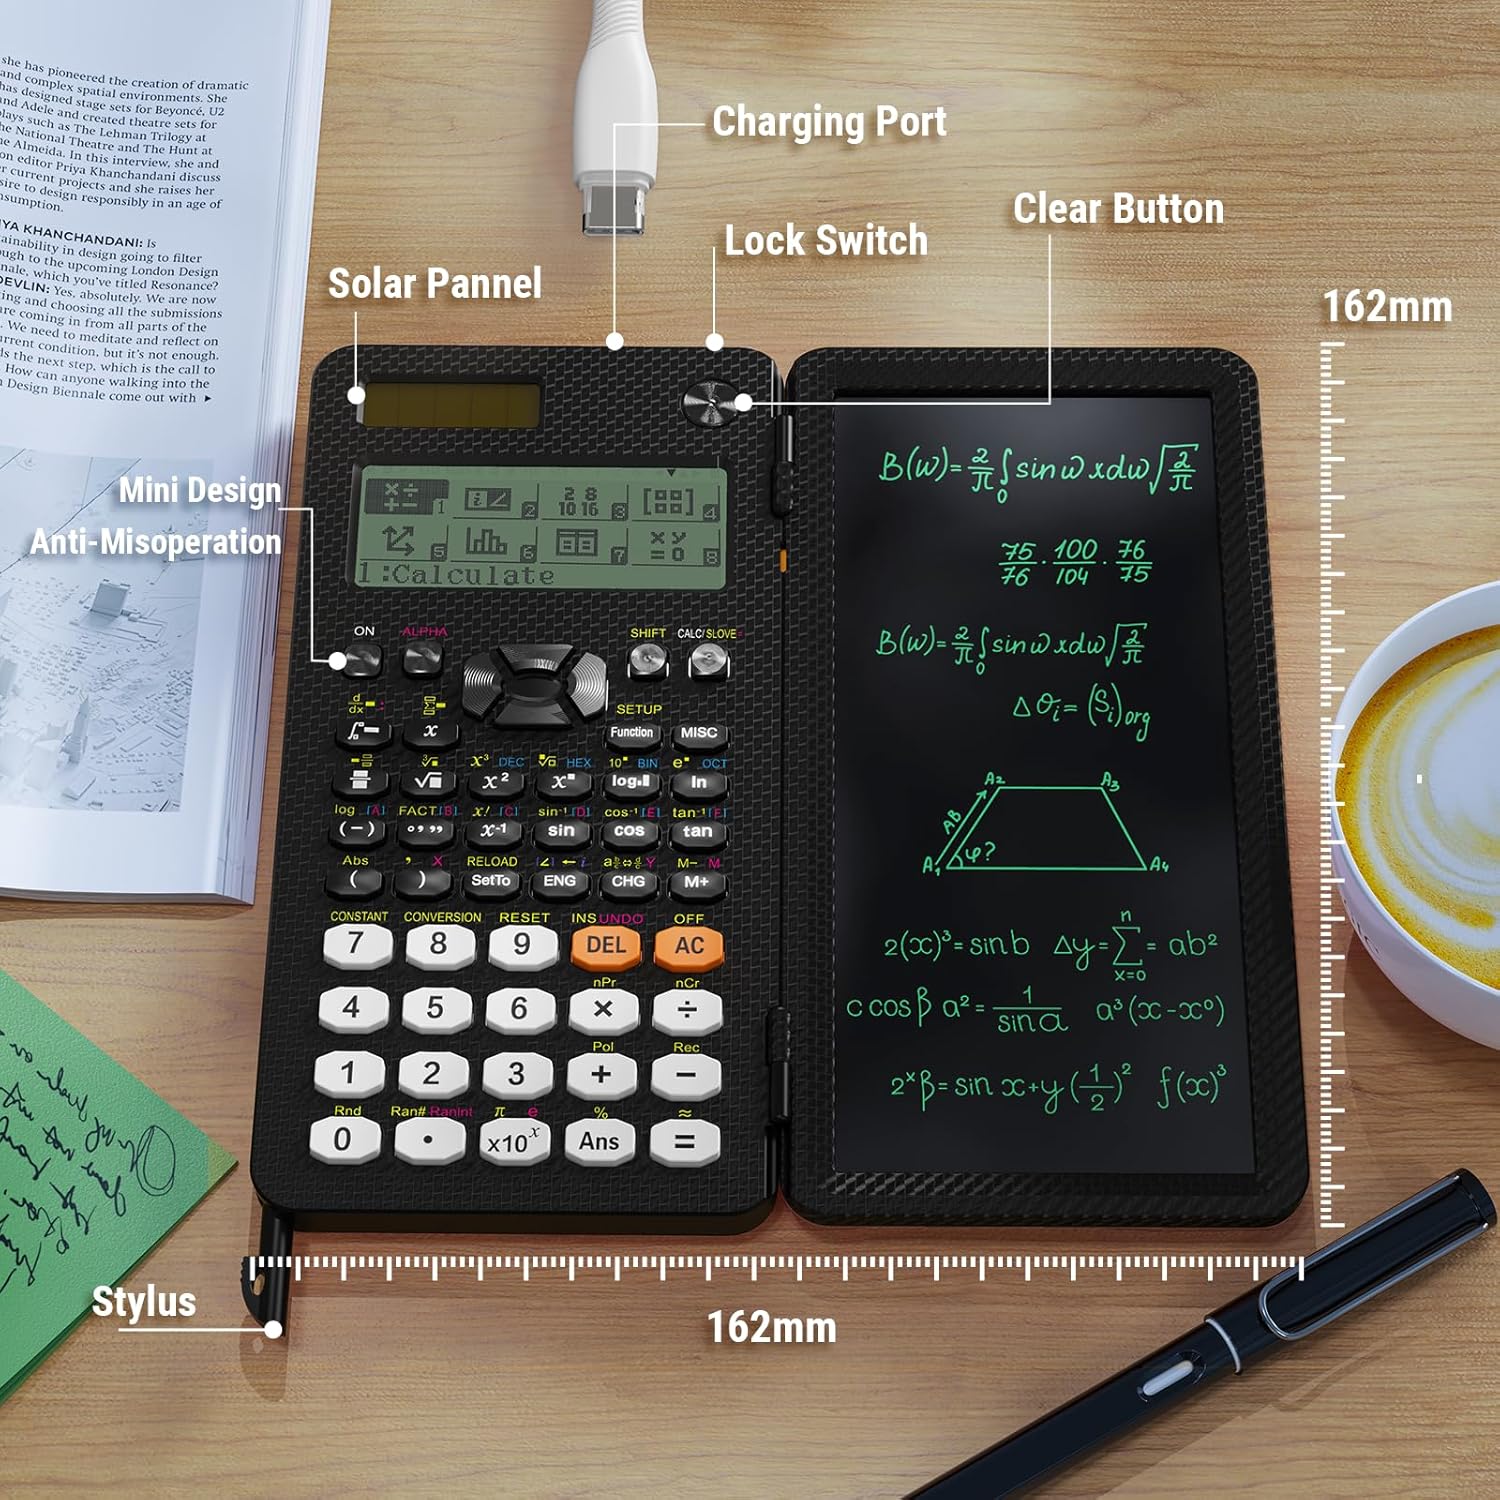 she has pioneered the creation of dramatic
and complex spatial environments. She
has designed stage sets for Beyoncé, U2
and Adele and created theatre sets for
plays such as The Lehman Trilogy at
the National Theatre and The Hunt at
Almeida. In this interview, she and
editor Priya Khanchandani discuss
current projects and she raises her
to design responsibly in an age of
KHANCHANDANI: Is
in design going to filter
to the upcoming London Design
which you've titled Resonance?
DEVLIN: Yes, absolutely. We are now
and choosing all the submissions
are coming in from all parts of the
We need to meditate and reflect on
current condition, but it's not enough.
the next step, which is the call to
How can anyone walking into the
Design Biennale come out with ▸
Charging Port
Clear Button
Lock Switch
Solar Pannel
162mm
Mini Design
Anti-Misoperation
×÷+− 1 i 2 2 8 10 16 3 4
5 6 7 x y = 0 8
1:Calculate
ON ALPHA SHIFT CALC/SLOVE=
d/dx ■ : Σ■ SETUP
∫■ x Function MISC
³√■ x³ DEC ■√■ HEX 10■ BIN e■ OCT
√■ x² x■ log■ ln
log [A] FACT[B] x! [C] sin⁻¹[D] cos⁻¹[E] tan⁻¹[F]
(−) °,,, x⁻¹ sin cos tan
Abs , X RELOAD [∠] ← i Y M− M
( ) SetTo ENG CHG M+
CONSTANT CONVERSION RESET INS UNDO OFF
7 8 9 DEL AC
nPr nCr
4 5 6 × ÷
Pol Rec
1 2 3 + −
Rnd Ran# RanInt π e % ≈
0 • ×10ˣ Ans =
B(w)= 2/π ∫₀ sin ω x dω √(2/π)
75/76 · 100/104 · 76/75
B(w)= 2/π ∫₀ sin ω x dω √(2/π)
Δθᵢ= (Sᵢ)org
A₂ A₃
AB
A₁ φ? A₄
2(x)³= sin b Δy= Σ n x=0 = ab²
c cos β a² = 1/sin α a³ (x-x⁰)
2ˣβ= sin x+y (1/2)² f(x)³
Stylus
162mm